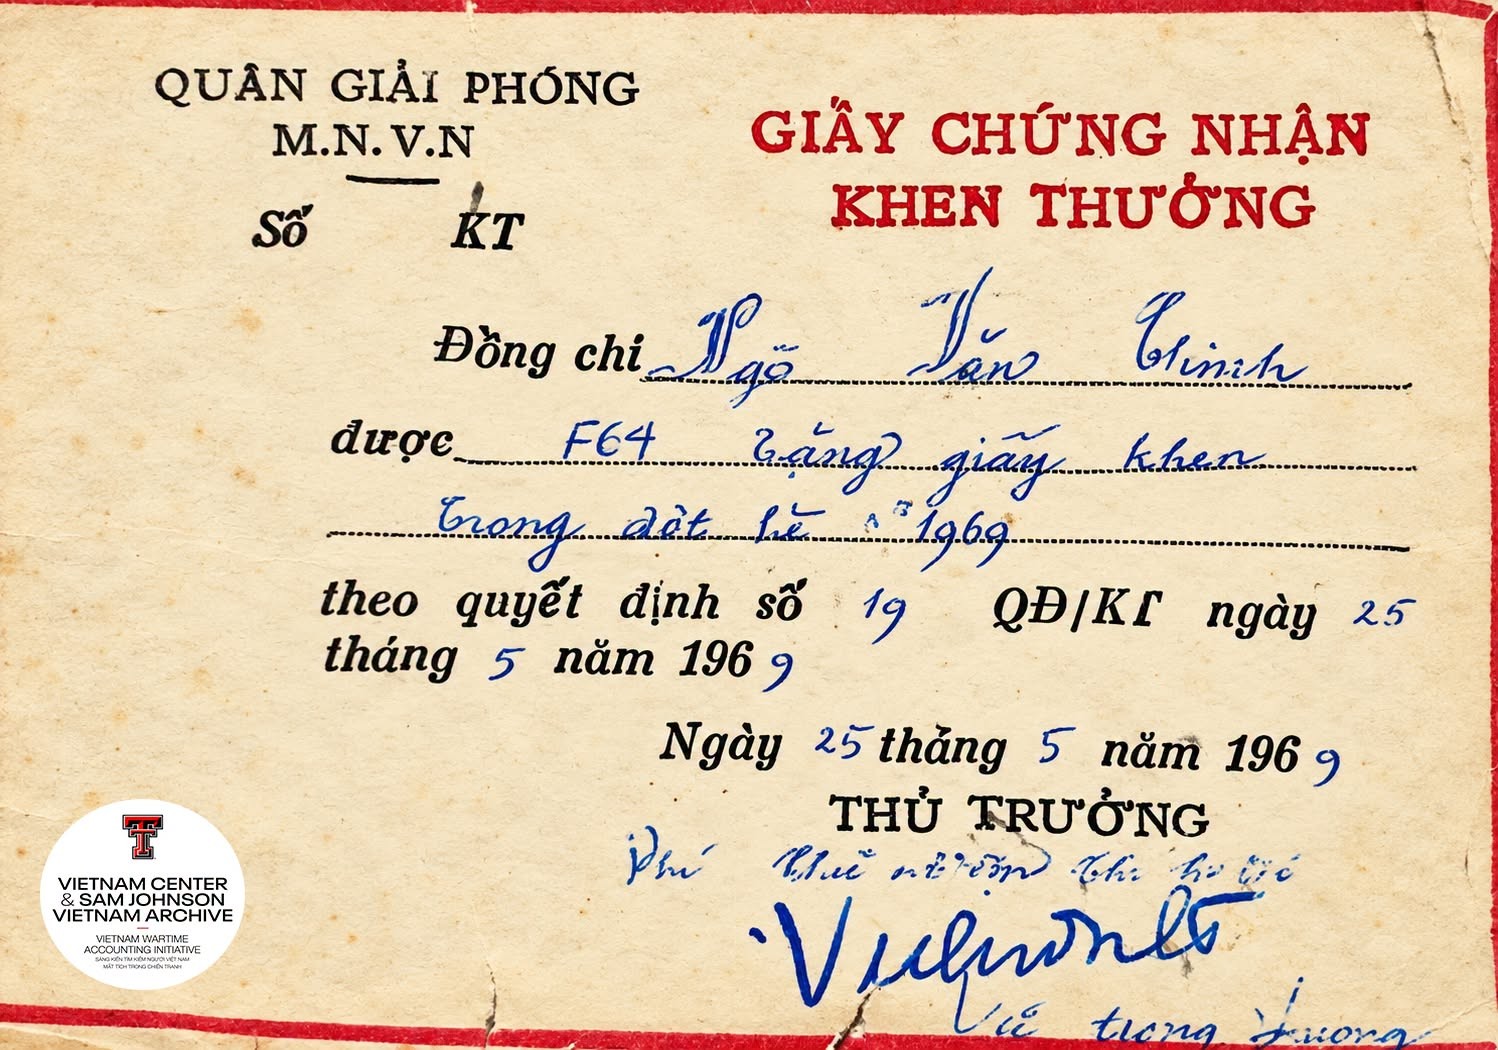 QUÂN GIẢI PHÓNG
M.N.V.N
Số KT
GIẤY CHỨNG NHẬN
KHEN THƯỞNG
Đồng chí Ngô Văn Thinh
được F64 tặng giấy khen
trong đợt hè 1969
theo quyết định số 19 QĐ/KT ngày 25
tháng 5 năm 1969
Ngày 25 tháng 5 năm 1969
THỦ TRƯỞNG
Vũ trọng
VIETNAM CENTER
& SAM JOHNSON
VIETNAM ARCHIVE
VIETNAM WARTIME
ACCOUNTING INITIATIVE
SÁNG KIẾN TÌM KIẾM NGƯỜI VIỆT NAM
MẤT TÍCH TRONG CHIẾN TRANH